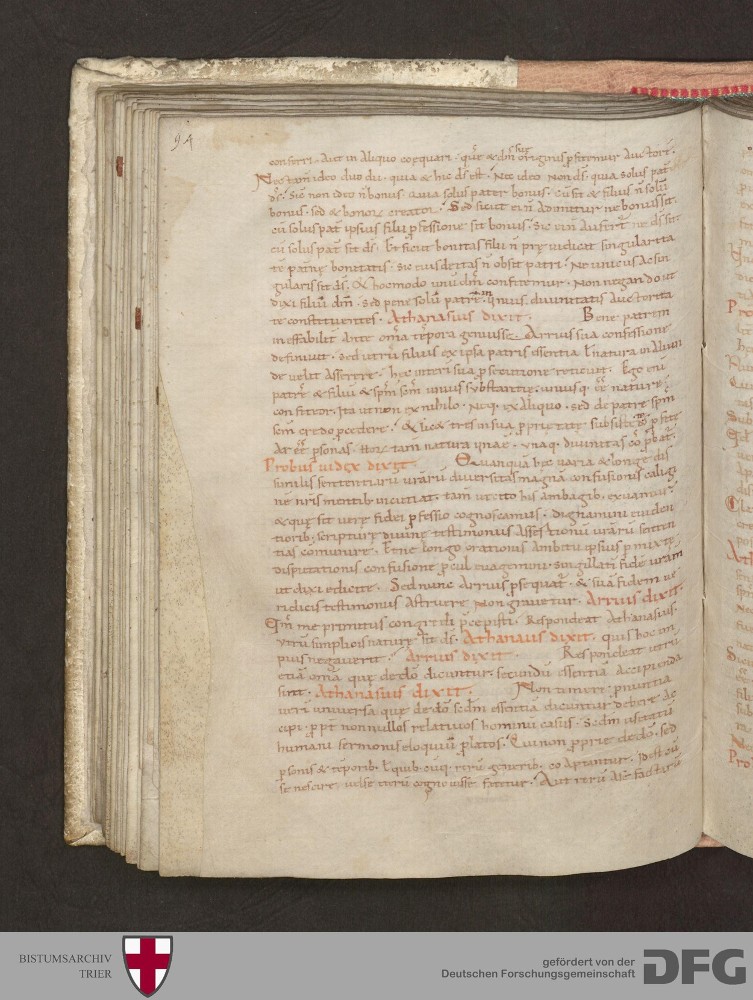 94
conferri. Aut in Aliquo coequari. quę & dm̄ originis ꝓfitemur Auctorē.
Nec tam̄ ideo duo dii. quia & hic ds̄ est. Nec ideo Non ds̄. quia solus pat̄
ds̄. Sic non ideo n̄ bonus. Quia solus pater bonus. Cū sit & filius n̄ solū
bonus. sed & bonorū creator. Sed sicut ei n̄ Adimitur ne bonus sit.
cū solus pat̄ ipsius filii ꝓfessione sit bonus. Sic ei n̄ Aufert̄ ne ds̄ sit.
cū solus pat̄ sit ds̄. Et sicut bonitas filii n̄ prę iudicat singularita
te paternę bonitatis. Sic eius deitas n̄ obsit patri. Ne unicus Ac sin
gularis sit ds̄. & hoc modo unū dm̄ confitemur. Non negando ut
dixi filiū dm̄. Sed pene solū patrē unius diuinitatis Auctorita
te constituentes. Athanasius dixit. Bene patrem
ineffabilit̄ Ante om̄a tēpora genuisse. Arrius sua confessione
definiuit. Sed utrū filius ex ipsa patris essentia. l̄ natura An Aliun
de uelit Asserere. hec interī sua ꝓsecutione reticuit. Ego enī
patrē & filiū & sp̄m sc̄m unius substantię. unius q. eē naturę
confiteor. Ita ut non ex nihilo. Neq. ex Aliquo. sed de patre sp̄m
sc̄m credo procedere. & licet tres in sua proprietate subsistere ꝓfite
Ar eē ꝑsonas. Hor̄ tam̄ natura una ē. unaq. diuinitas cōꝓbat̄.
Probus iudex dixit. Quanquā hęc uaria & longe dis
similis sententiarū urārū diuersitas magna confusionis caligi
nē nr̄is mentib. incutiat. tam̄ ut etto his ambagib. exuamur.
& quę sit utrę fidei ꝓfessio cognoscamus. dignamini euiden
tiorib. scripturę diuinę testimoniis Assertionū urārū senten
tias communire. Et ne longo orationis Ambitu ipsius ꝑ mixtę
disputationis confusione ꝓcul euagemur. singillatī fidē urām
ut dixi edicite. Sed nunc Arrius ꝓsequat̄. & suā fidem ue
ridicis testimoniis Astruere Non grauetur. Arrius dixit.
Qm̄ me primitus congredi p̄cepisti. Respondeat Athanasius.
utrū simplicis naturę sit ds̄. Athanasius dixit. quis hoc im
pius negauerit. Arrius dixit. Respondeat utrū
etiā om̄a quę de dō dicuntur. secundū essentiā Accipienda
sint. Athanasius dixit. Non temere pnuntia
uerī uniuersa quę de dō sc̄dm essentiā dicuntur debere Ac
cipi. ꝓpt̄ nonnullos relatiuos hominū casus. Sc̄dm usitatū
humani sermonis eloquiū ꝓlatos. Qui non ꝓprie de dō. sed
ꝑsonis & tēporib. l̄ quib. cuiq. rerū generib. co Aptantur. Id est cū
se nescire. uel se iterū cognouisse fatetur. Aut rerū Ab se factarū
BISTUMSARCHIV
TRIER
gefördert von der
Deutschen Forschungsgemeinschaft
DFG